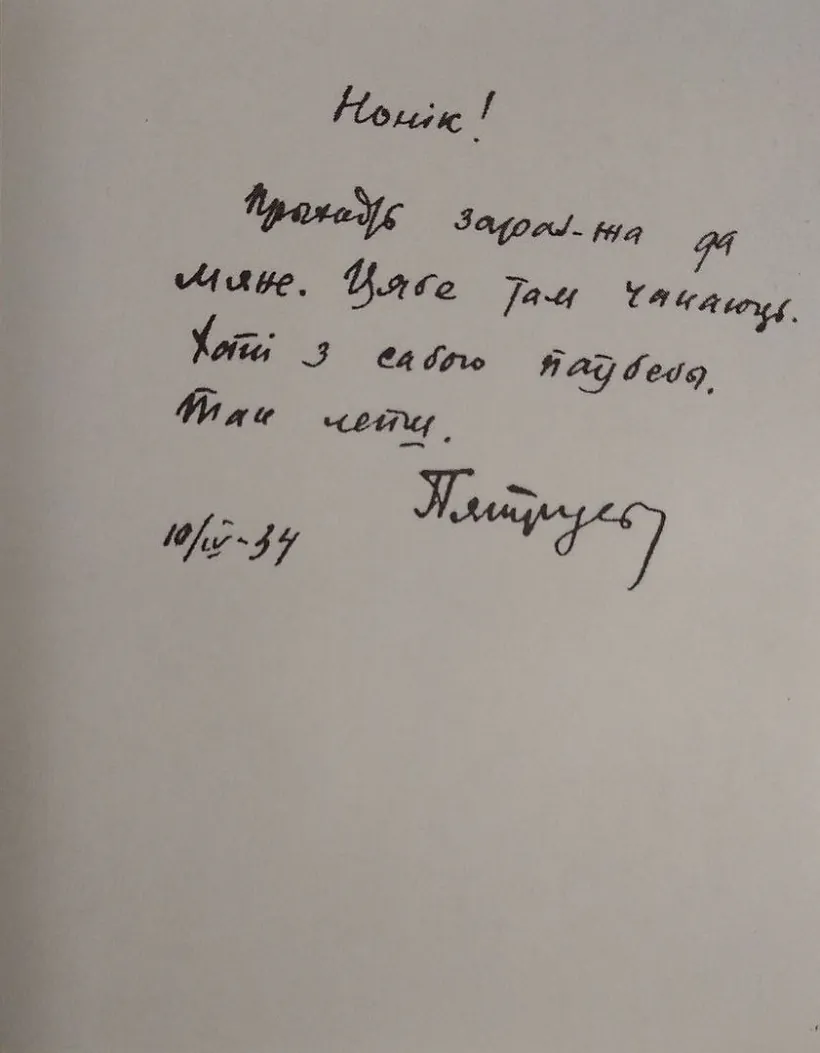 Нонік!
Прыхадзь зараз-жа да
мяне. Цябе там чакаюць.
Хоті з сабою паўбеды.
Так лепш.
Пятрусь
10/IV-34